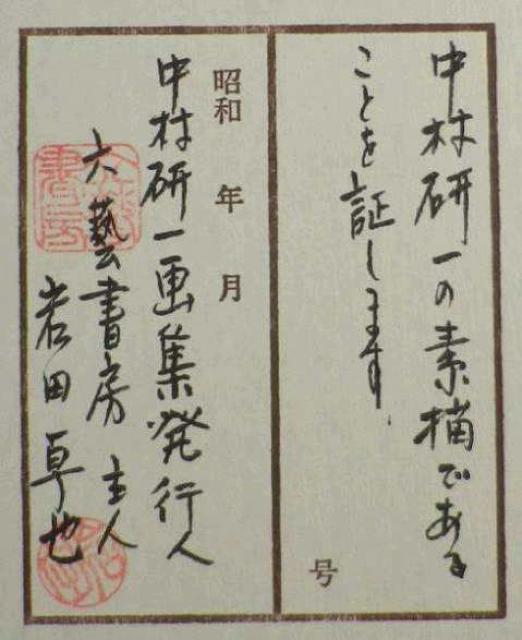 中村研一の素描である
ことを証します
号
昭和 年 月
中村研一画集発行人
六藝書房 主人
岩田卓也